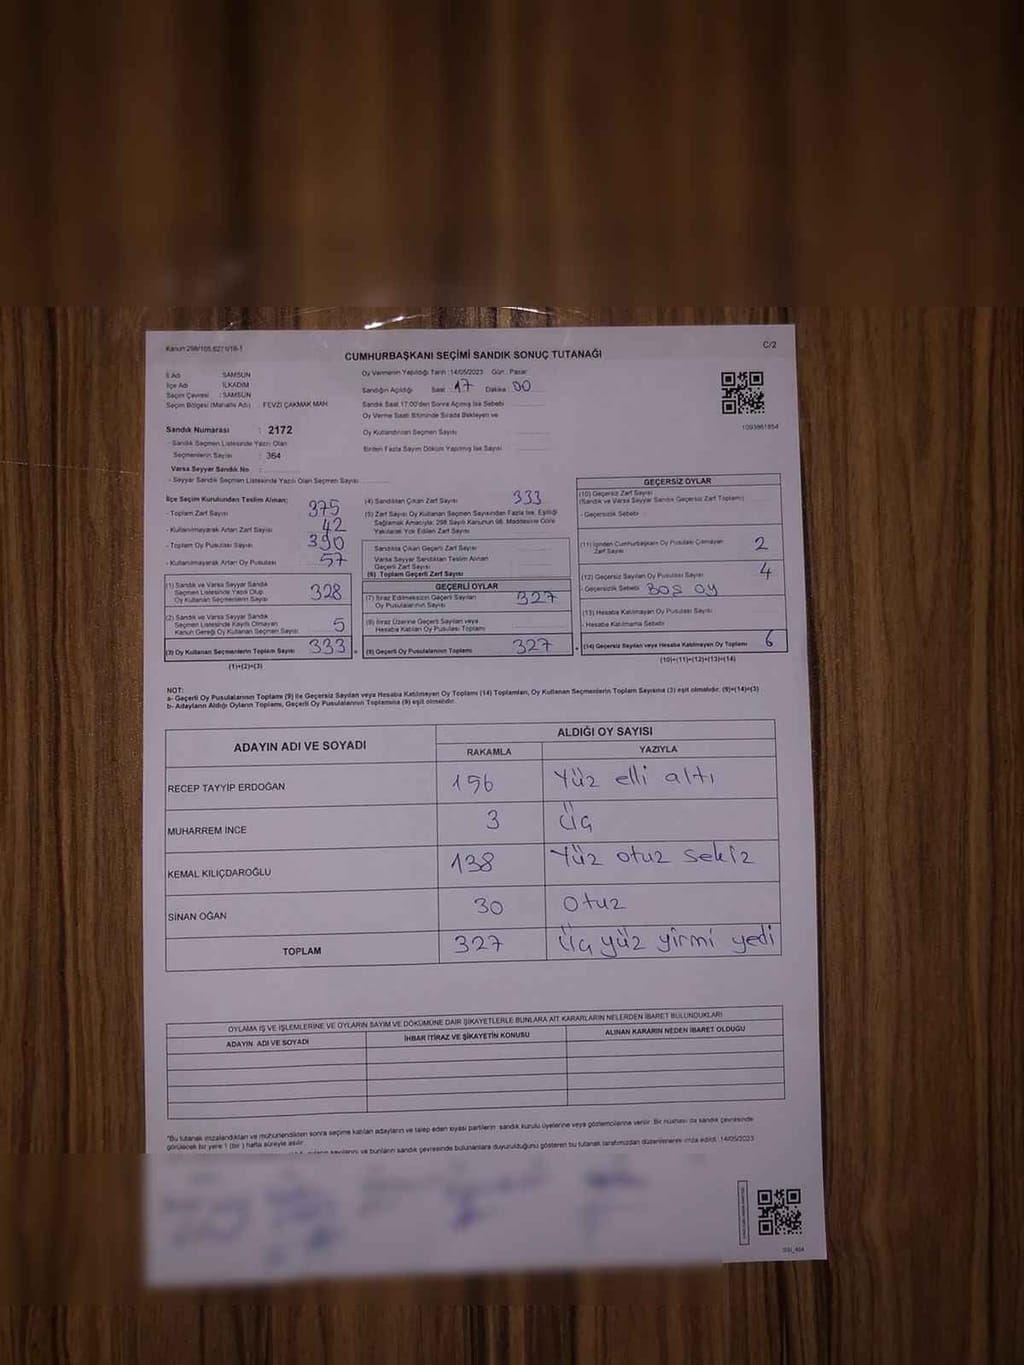 Kanun:298/105,6271/16-1
C/2
CUMHURBAŞKANI SEÇİMİ SANDIK SONUÇ TUTANAĞI
İl Adı SAMSUN
İlçe Adı İLKADIM
Seçim Çevresi : SAMSUN
Seçim Bölgesi (Mahalle Adı) : FEVZİ ÇAKMAK MAH
Sandık Numarası : 2172
- Sandık Seçmen Listesinde Yazılı Olan
Seçmenlerin Sayısı : 364
Varsa Seyyar Sandık No :
- Seyyar Sandık Seçmen Listesinde Yazılı Olan Seçmen Sayısı
Oy Vermenin Yapıldığı Tarih :14/05/2023 Gün : Pazar
Sandığın Açıldığı Saat 17 Dakika 00
Sandık Saat 17:00'den Sonra Açılmış İse Sebebi
Oy Verme Saati Bitiminde Sırada Bekleyen ve
Oy Kullandırılan Seçmen Sayısı
Birden Fazla Sayım Döküm Yapılmış İse Sayısı
1093961854
İlçe Seçim Kurulundan Teslim Alınan;
- Toplam Zarf Sayısı 375
- Kullanılmayarak Artan Zarf Sayısı 42
- Toplam Oy Pusulası Sayısı 390
- Kullanılmayarak Artan Oy Pusulası 57
(1) Sandık ve Varsa Seyyar Sandık
Seçmen Listesinde Yazılı Olup
Oy Kullanan Seçmenlerin Sayısı 328
(2) Sandık ve Varsa Seyyar Sandık
Seçmen Listesinde Kayıtlı Olmayan
Kanun Gereği Oy Kullanan Seçmen Sayısı 5
(3) Oy Kullanan Seçmenlerin Toplam Sayısı 333
(1)+(2)=(3)
(4) Sandıktan Çıkan Zarf Sayısı 333
(5) Zarf Sayısı Oy Kullanan Seçmen Sayısından Fazla İse, Eşitliği
Sağlamak Amacıyla; 298 Sayılı Kanunun 98. Maddesine Göre
Yakılarak Yok Edilen Zarf Sayısı
Sandıkta Çıkan Geçerli Zarf Sayısı
Varsa Seyyar Sandıktan Teslim Alınan
Geçerli Zarf Sayısı
(6) Toplam Geçerli Zarf Sayısı
GEÇERLİ OYLAR
(7) İtiraz Edilmeksizin Geçerli Sayılan
Oy Pusulalarının Sayısı 327
(8) İtiraz Üzerine Geçerli Sayılan veya
Hesaba Katılan Oy Pusulası Toplamı
(9) Geçerli Oy Pusulalarının Toplamı 327
GEÇERSİZ OYLAR
(10) Geçersiz Zarf Sayısı
(Sandık ve Varsa Seyyar Sandık Geçersiz Zarf Toplamı)
- Geçersizlik Sebebi
(11) İçinden Cumhurbaşkanı Oy Pusulası Çıkmayan
Zarf Sayısı 2
(12) Geçersiz Sayılan Oy Pusulası Sayısı 4
- Geçersizlik Sebebi Boş oy
(13) Hesaba Katılmayan Oy Pusulası Sayısı
- Hesaba Katılmama Sebebi
(14) Geçersiz Sayılan veya Hesaba Katılmayan Oy Toplamı 6
(10)+(11)+(12)+(13)=(14)
NOT:
a- Geçerli Oy Pusulalarının Toplamı (9) ile Geçersiz Sayılan veya Hesaba Katılmayan Oy Toplamı (14) Toplamları, Oy Kullanan Seçmenlerin Toplam Sayısına (3) eşit olmalıdır. (9)+(14)=(3)
b- Adayların Aldığı Oyların Toplamı, Geçerli Oy Pusulalarının Toplamına (9) eşit olmalıdır.
ADAYIN ADI VE SOYADI
ALDIĞI OY SAYISI
RAKAMLA YAZIYLA
RECEP TAYYİP ERDOĞAN 156 Yüz elli altı
MUHARREM İNCE 3 Üç
KEMAL KILIÇDAROĞLU 138 Yüz otuz sekiz
SİNAN OĞAN 30 Otuz
TOPLAM 327 Üç yüz yirmi yedi
OYLAMA İŞ VE İŞLEMLERİNE VE OYLARIN SAYIM VE DÖKÜMÜNE DAİR ŞİKAYETLERLE BUNLARA AİT KARARLARIN NELERDEN İBARET BULUNDUKLARI
ADAYIN ADI VE SOYADI İHBAR İTİRAZ VE ŞİKAYETİN KONUSU ALINAN KARARIN NEDEN İBARET OLDUĞU
"Bu tutanak imzalandıktan ve mühürlendikten sonra seçime katılan adayların ve talep eden siyasi partilerin sandık kurulu üyelerine veya gözlemcilerine verilir. Bir nüshası da sandık çevresinde
görülecek bir yere 1 (bir ) hafta süreyle asılır.
ve bunların sandık çevresinde bulunanlara duyurulduğunu gösteren bu tutanak tarafımızdan düzenlenerek imza edildi. 14/05/2023